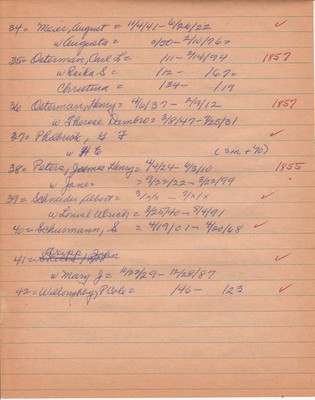 34= Meier, August = 11/4/41 - 6/26/22 ✓
w Augusta = 0/50 - 2/10/76
35= Osterman, Carl L= 111 - 3/14/94 1857
w Reika S = 112 - 167
Christina = 134 - 119
36 Osterman, Henry= 4/6/37 - 2/3/12 1857
w Therese Dambro= 3/8/47 - 7/25/31
37= Philbrick, G F ✓
w H E (3m + 40)
38= Peters, James Henry= 4/4/24 - 6/3/10 1855
w Jane= 9/22/22 - 3/22/99
39= Schneider, Albert= ✓
w Louise Ulrich= 3/25/40 - 2/4/91
40= Schurmann, S = 4/19/01 - 4/20/68 ✓
41= Trupp, John ✓
w Mary J= 11/22/29 - 12/28/87
42= Willoughby, P Cole= 146 - 123 ✓